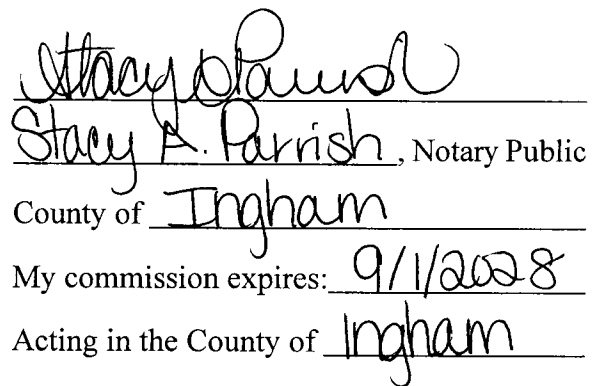 Stacy A Parrish
Stacy A. Parrish, Notary Public
County of Ingham
My commission expires: 9/1/2028
Acting in the County of Ingham